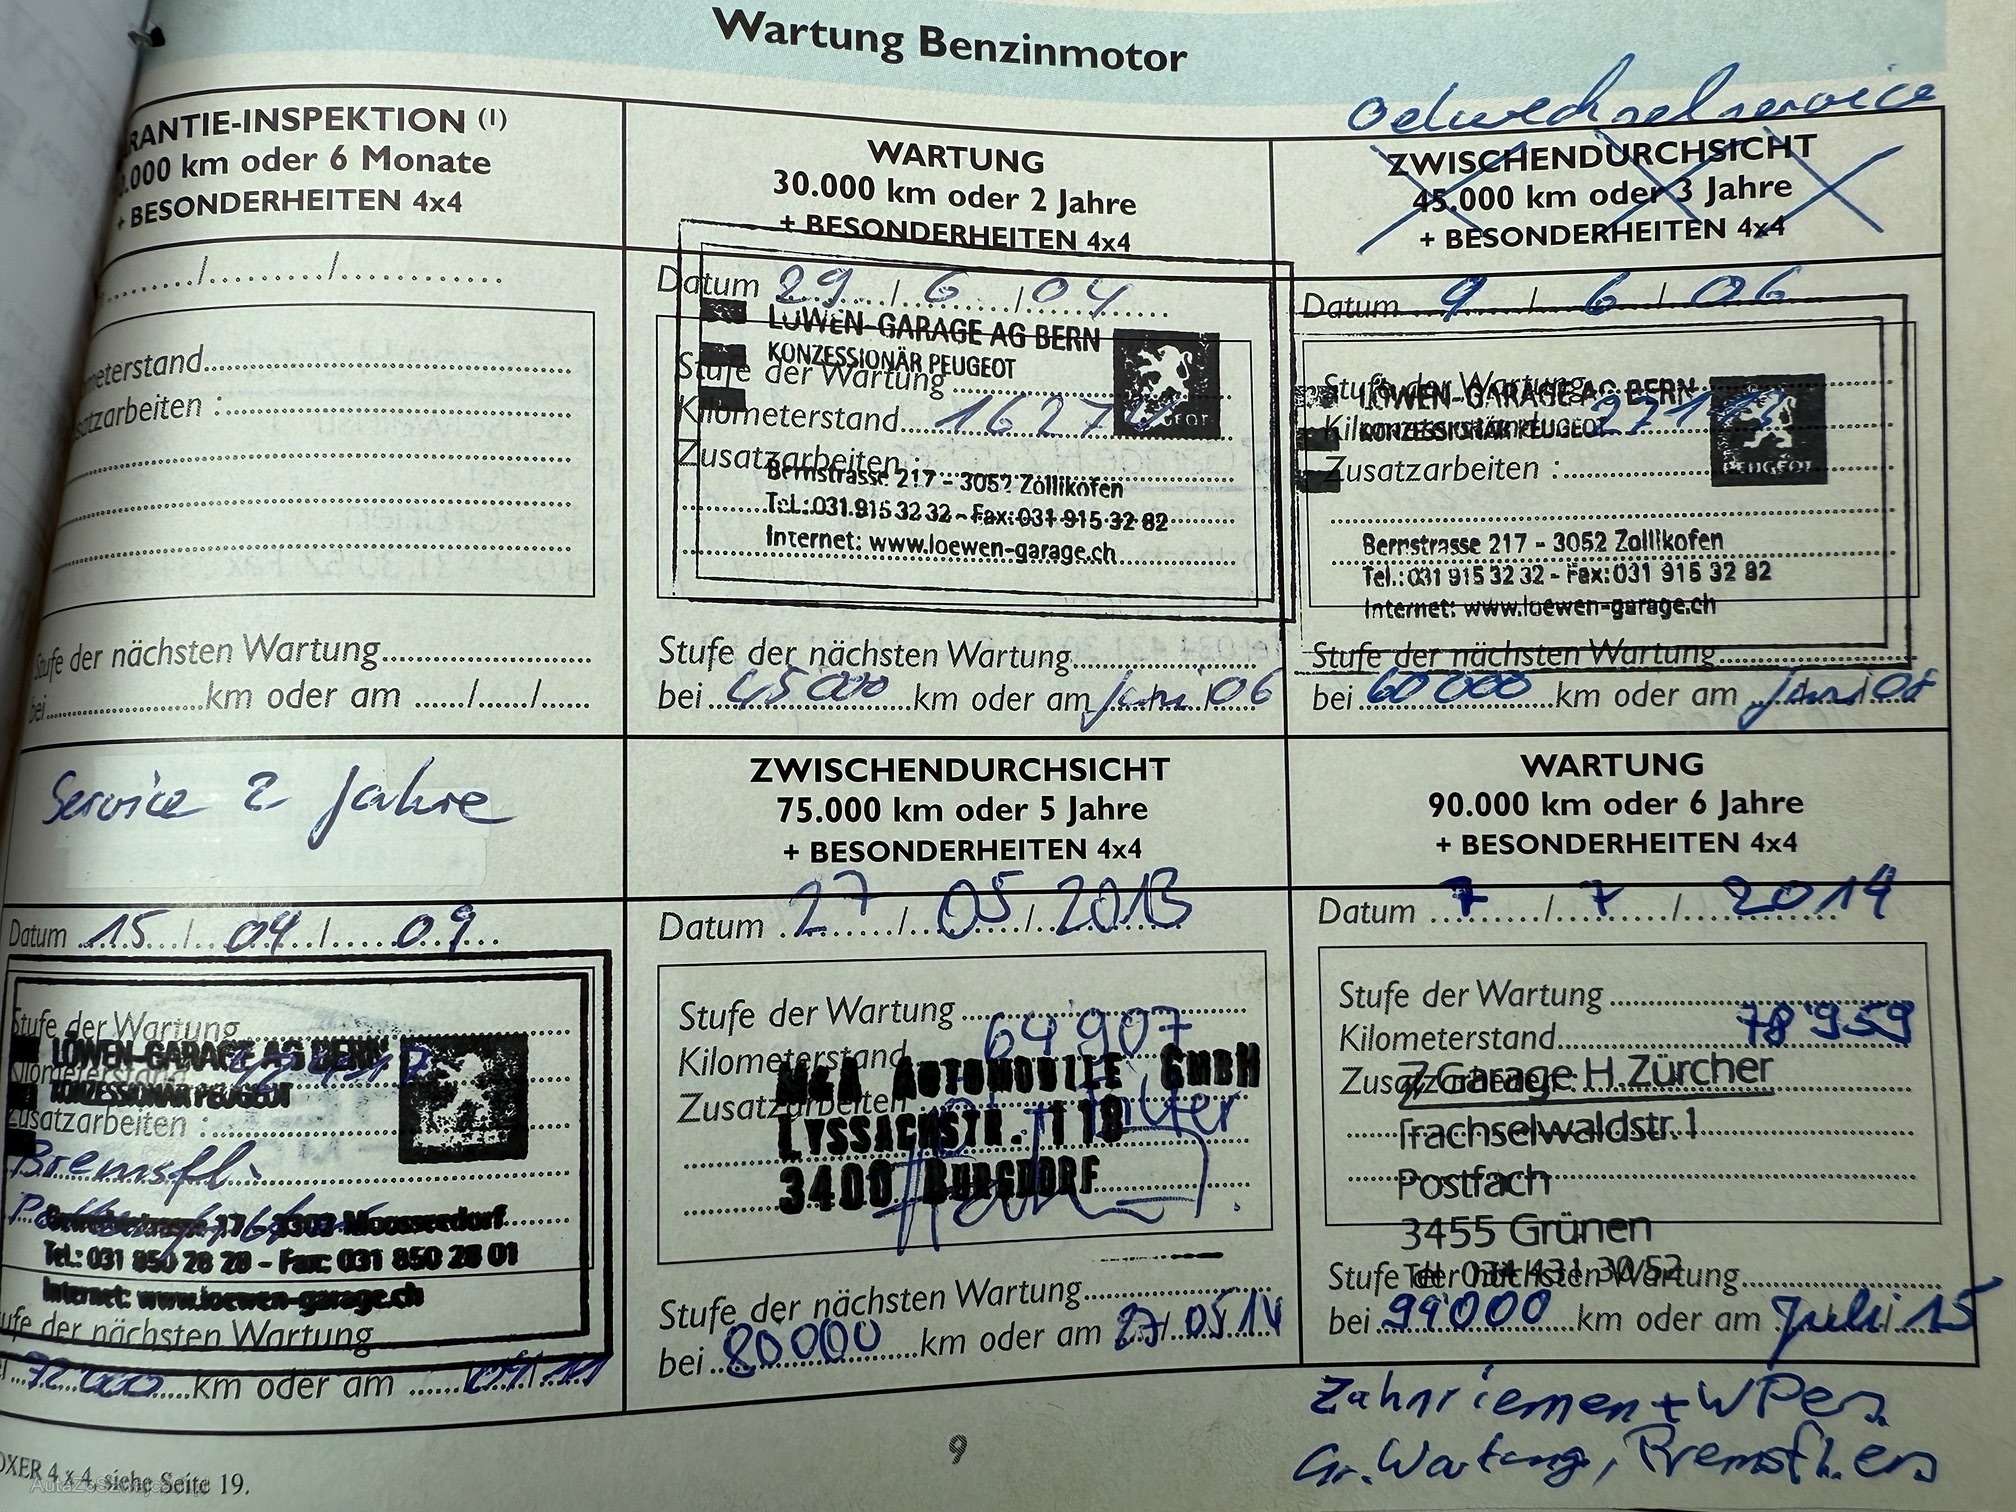 Wartung Benzinmotor
RANTIE-INSPEKTION (1)
.000 km oder 6 Monate
+ BESONDERHEITEN 4x4
meterstand
satzarbeiten :
Stufe der nächsten Wartung
bei km oder am / /
WARTUNG
30.000 km oder 2 Jahre
+ BESONDERHEITEN 4x4
Datum 29 / 6 / 04
LÖWEN-GARAGE AG BERN
KONZESSIONÄR PEUGEOT
Stufe der Wartung
Kilometerstand
Zusatzarbeiten :
Bernstrasse 217 - 3052 Zollikofen
Tel.: 031 915 32 32 - Fax: 031 915 32 82
Internet: www.loewen-garage.ch
Stufe der nächsten Wartung
bei 45000 km oder am Juni / 06
Oelwechselservice
ZWISCHENDURCHSICHT
45.000 km oder 3 Jahre
+ BESONDERHEITEN 4x4
Datum 9 / 6 / 06
Stufe der Wartung
LÖWEN-GARAGE AG BERN
Kilometerstand
KONZESSIONÄR PEUGEOT
PEUGEOT
Zusatzarbeiten :
Bernstrasse 217 - 3052 Zollikofen
Tel.: 031 915 32 32 - Fax: 031 915 32 82
Internet: www.loewen-garage.ch
Stufe der nächsten Wartung
bei 60000 km oder am Juni / 08
Service 2 Jahre
Datum 15 / 04 / 09
Stufe der Wartung
LÖWEN-GARAGE AG BERN
Kilometerstand
KONZESSIONÄR PEUGEOT
Zusatzarbeiten :
Bremsfl.
17 - 3302 Moosseedorf
Tel.: 031 850 28 28 - Fax: 031 850 28 01
Internet: www.loewen-garage.ch
ufe der nächsten Wartung
72000 km oder am 04/11
ZWISCHENDURCHSICHT
75.000 km oder 5 Jahre
+ BESONDERHEITEN 4x4
Datum 27 / 05 / 2013
Stufe der Wartung
Kilometerstand 64'907
AUTOMOBILE GMBH
Zusatzarbeiten
LYSSACHSTR. 118
3400 BURGDORF
Stufe der nächsten Wartung
bei 80000 km oder am 27/05/14
WARTUNG
90.000 km oder 6 Jahre
+ BESONDERHEITEN 4x4
Datum 7 / 7 / 2014
Stufe der Wartung
Kilometerstand 78'959
Zusatzarbeiten :
Garage H.Zürcher
Trachselwaldstr.1
Postfach
3455 Grünen
Stufe der nächsten Wartung
Tel. 034 431 30 52
bei 94000 km oder am Juli / 15
Zahnriemen + WP ers
Gr. Wartung, Bremsfl. ers
OXER 4 x 4, siehe Seite 19.
9